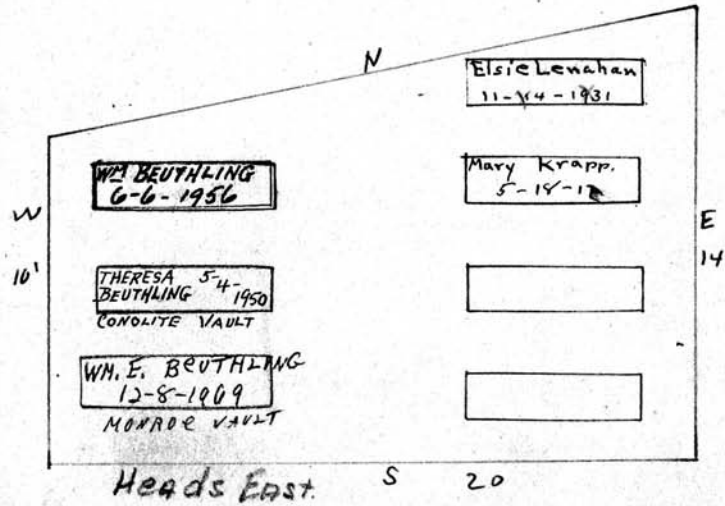 N
Elsie Lenahan
11-14-1931
WM BEUTHLING
6-6-1956
Mary Krapp.
W
E
10'
14
THERESA 5-4-
BEUTHLING 1950
CONOLITE VAULT
WM. E. BEUTHLING
12-8-1969
MONROE VAULT
Heads East.
S 20